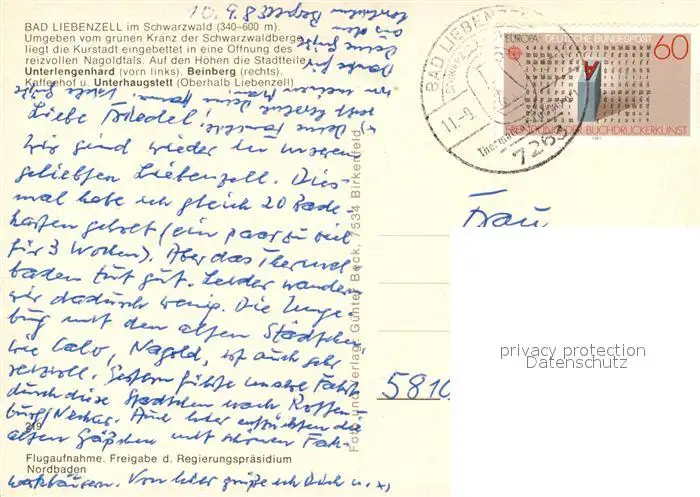 10.9.8
BAD LIEBENZELL im Schwarzwald (340–600 m)
Umgeben vom grünen Kranz der Schwarzwaldberge
liegt die Kurstadt eingebettet in eine Öffnung des
reizvollen Nagoldtals. Auf den Höhen die Stadtteile
Unterlengenhard (vorn links). Beinberg (rechts).
Kaffeehof u. Unterhaugstett (Oberhalb Liebenzell)
Liebe Friedel!
Wir sind wieder in unserem
geliebten Liebenzell. Dies-
mal habe ich gleich 20 Bade-
karten geholt (ein paar zu viel
für 3 Wochen). Aber das Thermal-
baden tut gut. Leider wandern
wir dadurch wenig. Die Umge-
bung mit den alten Städtchen
wie Calw, Nagold, ist auch sehr
reizvoll. Gestern führte unsere Fahrt
durch diese Städtchen nach Rotten-
burg/Neckar. Auch hier entzückten die
alten Gäßchen mit schönen Fach-
werkhäusern. Von hier grüße ich Dich u. x)
219
Flugaufnahme. Freigabe d. Regierungspräsidium
Nordbaden
Danke für
Deine Grüße
aus dem
Foto und Verlag: Günter Beck, 7534 Birkenfeld
BAD LIEBENZ
11.-9
7263
EUROPA DEUTSCHE BUNDESPOST
60
ERFINDUNG DER BUCHDRUCKERKUNST
Frau
5810
privacy protection
Datenschutz